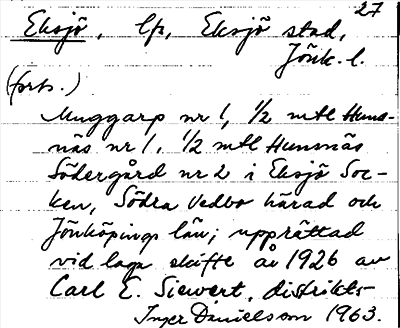 27
Eksjö, lfs, Eksjö stad,
Jönk. l.
(forts.)
Muggarp nr 1, 1/2 mtl Huns-
näs nr 1. 1/2 mtl Hunsnäs
Södergård nr 2 i Eksjö Soc-
ken, Södra Vedbo härad och
Jönköpings län; upprättad
vid laga skifte år 1926 av
Carl E. Siewert, distrikts-
Inger Danielsson 1963.